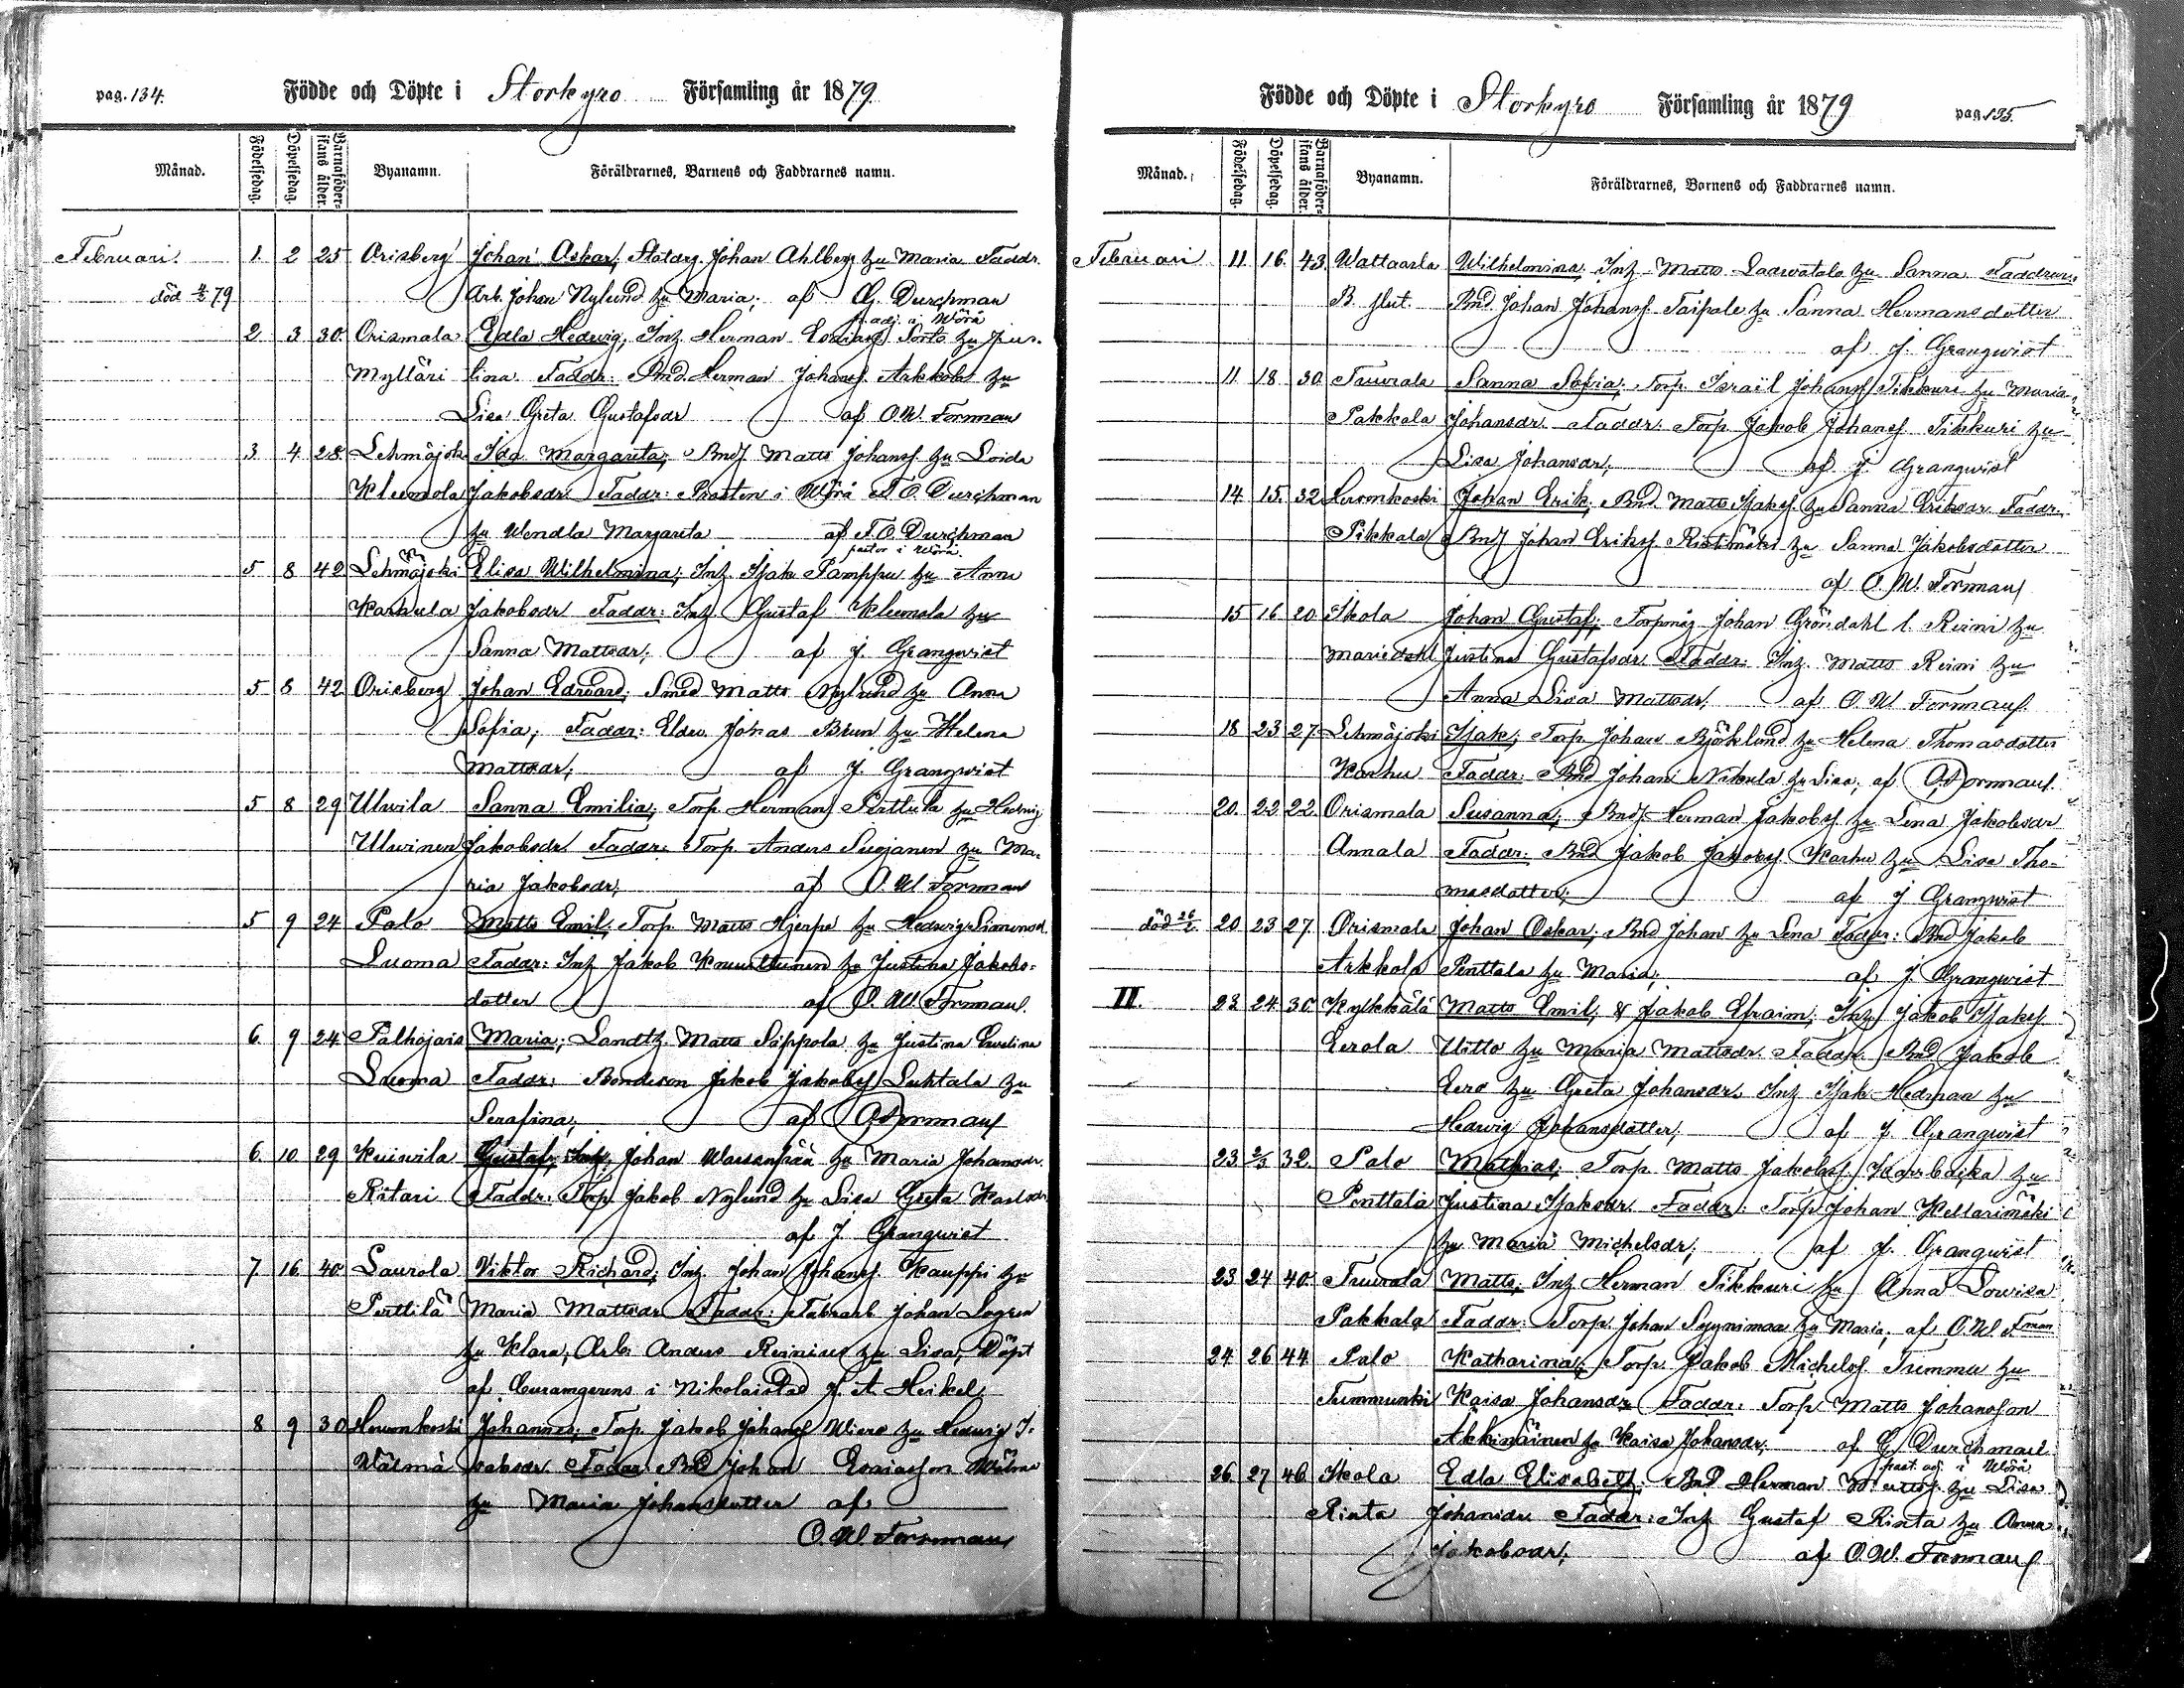 pag. 134. Födde och Döpte i Storkyro Församling år 1879
Månad. Födelsedag. Döpelsedag. Barnaföderskans ålder. Byanamn. Föräldrarnes, Barnens och Faddrarnes namn.
Februari 1. 2 25 Orisberg Johan Oskar; Johan Ahlberg hu Maria Faddr.
död 79 Arb. Johan Nylund hu Maria; af G. Durchman
p. adj. i Wörå
2 3 30. Orismala Edla Hedvig, Inh. Herman hu Jus-
Mylläri tina Faddr: Bnd. Herman Johans. Arkkola hu
Lisa Greta Gustafsdr af O.W. Forsman
3 4 28 Lehmäjoki Ida Margareta; Matts Johans. hu Lovisa
Kleemola Jakobsdr Faddr: Prosten i Wörå F.O. Durchman
hu Wendla Margareta af F.O. Durchman
pastor i Wörå
5 8 42 Lehmäjoki Elisa Wilhelmina; Inh. Isak Pamppu hu Anna
Kaukula Jakobsdr Faddr: Inh. Gustaf Kleemola hu
Sanna Mattsdr; af J. Granqwist
5 8 42 Orisberg Johan Edvard; Smed Matts Nylund hu Anna
Sofia; Faddr: Jonas Brun hu Helena
Mattsdr; af J. Granqwist
5 8 29 Ulwila Sanna Emilia; Torp. Herman Perttula hu Hedvig
Ulwinen Jakobsdr Faddr: Torp. Anders Suojanen hu Ma-
ria Jakobsdr; af O.W. Forsman
5 9 24 Palo Matts Emil; Torp. Matts Hjerpe hu Hedvig Simonsd.
Luoma Faddr: Inh. Jakob Knuuttunen hu Justina Jakobs-
dotter af O.W. Forsman
6. 9 24 Palhojais Maria; Matts Säppola hu Justina Ewelina
Luoma Faddr: Bondeson Jakob Jakobs. Luhtala hu
Serafina; af O. Forsman
6. 10 29 Kuiwila Gustaf; Inh. Johan Wassinpää hu Maria Johansdr.
Rätäri Faddr: Torp. Jakob Nylund hu Lisa Greta Karlsdr
af J. Granqwist
7. 16 40 Laurola Viktor Richard; Inh. Johan Johans. Kauppi hu
Perttilä Maria Mattsdr Faddr: Fabrarb. Johan Logren
hu Klara; Arb. Anders Reinius hu Lisa, Döpt
af i Nikolaistad J.A. Heikel
8 9 30 Herronkoski Johannes; Torp. Jakob Johans. Wiero hu Hedvig I-
Wälimä saksdr. Faddr. Bnd Johan Esaiasson
hu Maria Johansdotter af
O.W. Forsman
Födde och Döpte i Storkyro Församling år 1879 pag. 135.
Månad. Födelsedag. Döpelsedag. Barnaföderskans ålder. Byanamn. Föräldrarnes, Barnens och Faddrarnes namn.
Februari 11. 16. 43 Wattaarla Wilhelmina; Inh. Matts hu Sanna Faddrar:
B. slut. Bnd Johan Johans. Taipale hu Sanna Hermansdotter
af J. Granqwist
11. 18 30 Tuurala Sanna Sofia; Torp. Israil Johans. Tikkuri hu Maria
Pakkala Johansdr. Faddr. Torp. Jakob Johans. Tikkuri hu
Lisa Johansdr; af J. Granqwist
14. 15. 32 Herronkoski Johan Erik; Bnd. Matts Isaks. hu Sanna Eriksdr. Faddr.
Pikkala Johan Eriks. Ristimäki hu Sanna Jakobsdotter
af O.W. Forsman
15 16 20 Ikola Johan Gustaf; Torpmåg Johan Gröndahl l. Reini hu
Mariedahl Justina Gustafsdr. Faddr: Inh. Matts Reini hu
Anna Lisa Mattsdr; af O.W. Forsman
18 23 27 Lehmäjoki Isak; Torp. Johan Björklund hu Helena Thomasdotter
Karhu Faddr. Bnd Johan Nikula hu Lisa; af O. Forsman
20. 22 22 Orismala Susanna; Herman Jakobs. hu Lena Jakobsdr
Annala Faddr. Bnd Jakob Jakobs. Karhu hu Lisa Tho-
masdotter; af J. Granqwist
död 26/2 20 23 27 Orismala Johan Oskar; Bnd Johan hu Lena Faddr: Bnd Jakob
Arkkola Penttala hu Maria; af J. Granqwist
II. 23 24 30 Kylkkälä Matts Emil; & Jakob Efraim; Inh. Jakob Isaks.
Eerola Uitto hu Maria Mattsdr. Faddr. Bnd. Jakob
Eero hu Greta Johansdr. Inh. Isak Hedman hu
Hedvig Johansdotter; af J. Granqwist
23 2/3 32 Palo Mathias; Torp. Matts Jakobs. hu
Penttala Justina Isaksdr. Faddr: Torp. Johan Kellarimäki
hu Maria Michelsdr; af J. Granqwist
23 24 40 Tuurala Matts; Inh. Herman Tikkuri hu Anna Lowisa
Pakkala Faddr. Torp. Johan Syynimaa hu Maria; af O.W. Fman
24 26 44 Palo Katharina; Torp. Jakob Michels. Tummu hu
Tummunki Kaisa Johansdr Faddr. Torp. Matts Johansson
Akkinäinen hu Kaisa Johansdr; af G. Durchman
past. adj. i Wörå
26 27 46 Ikola Edla Elisabeth; Bnd Herman Matts. hu Lisa
Rinta Johansdr Faddr: Inh. Gustaf Rinta hu Anna
Jakobsdr; af O.W. Forsman